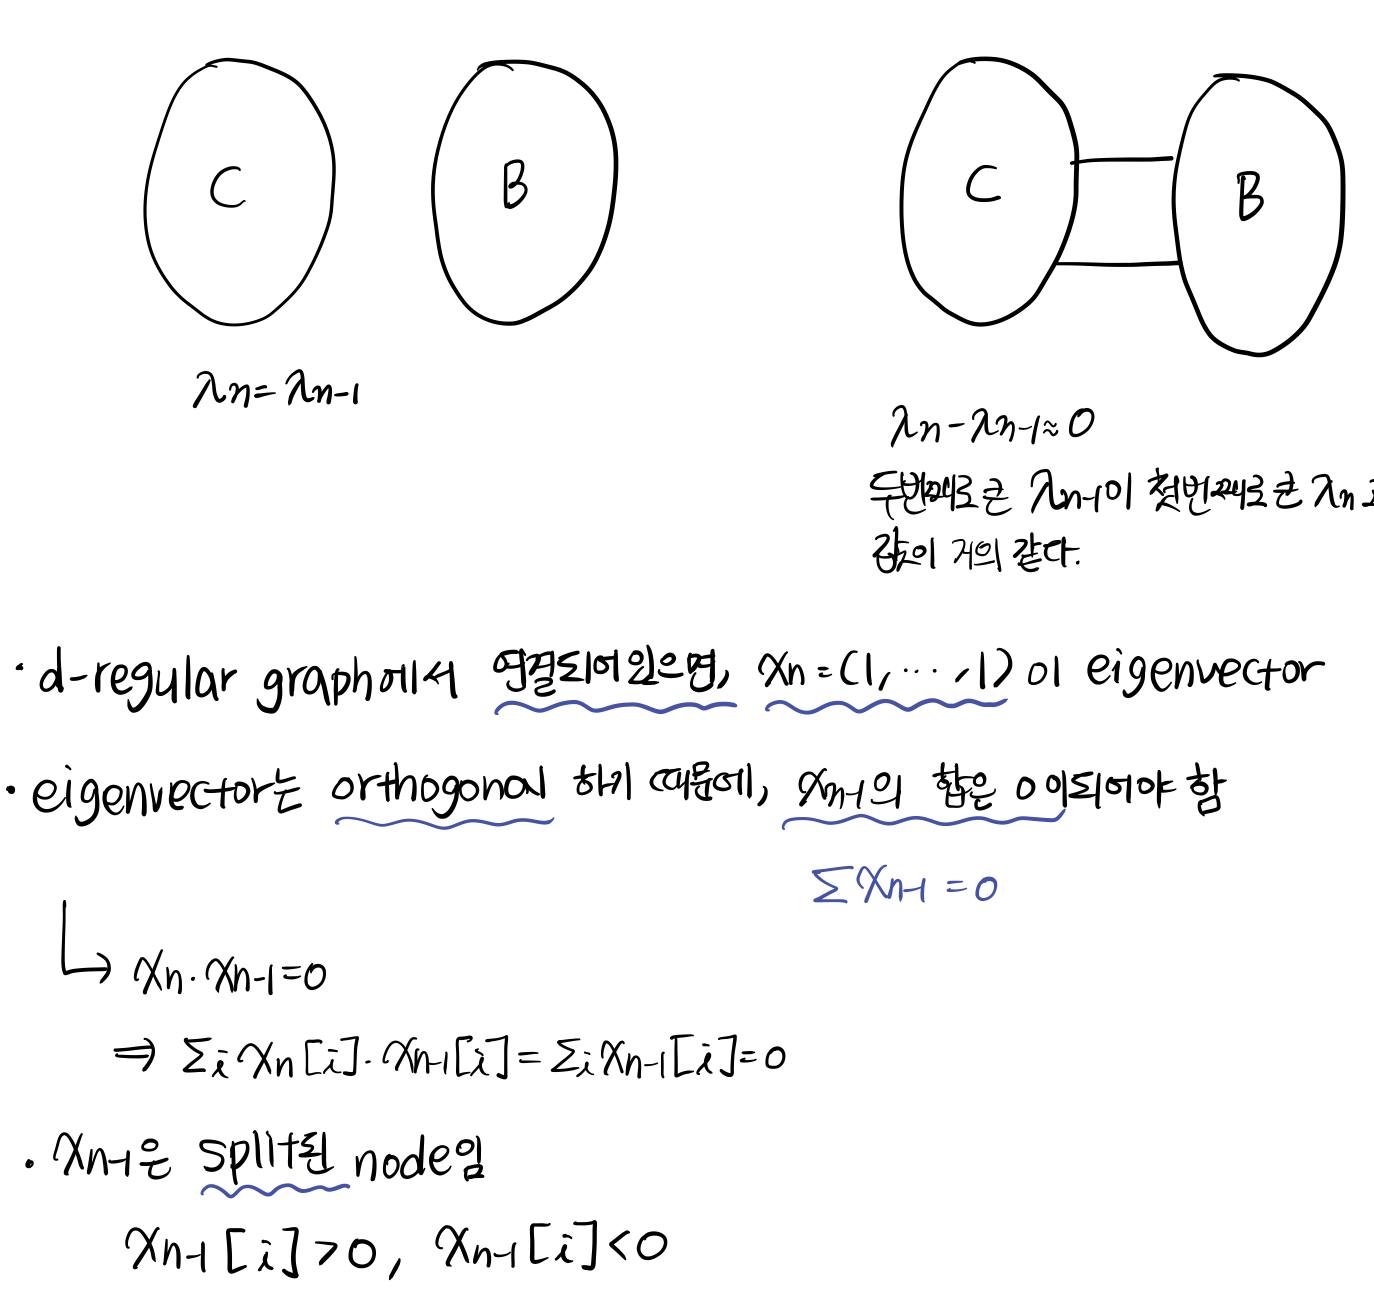 C
B
C
B
λn = λn-1
λn - λn-1 ≈ 0
두번째로 큰 λn-1이 첫번째로 큰 λn
값이 거의 같다.
· d-regular graph에서 연결되어있으면, xn = (1, ··· , 1) 이 eigenvector
· eigenvector는 orthogonal 하기 때문에, xn-1의 합은 0이되어야 함
Σxn-1 = 0
↳ xn · xn-1 = 0
⇒ Σi xn[i] · xn-1[i] = Σi xn-1[i] = 0
· xn-1은 split된 node임
xn-1[i] > 0, xn-1[i] < 0